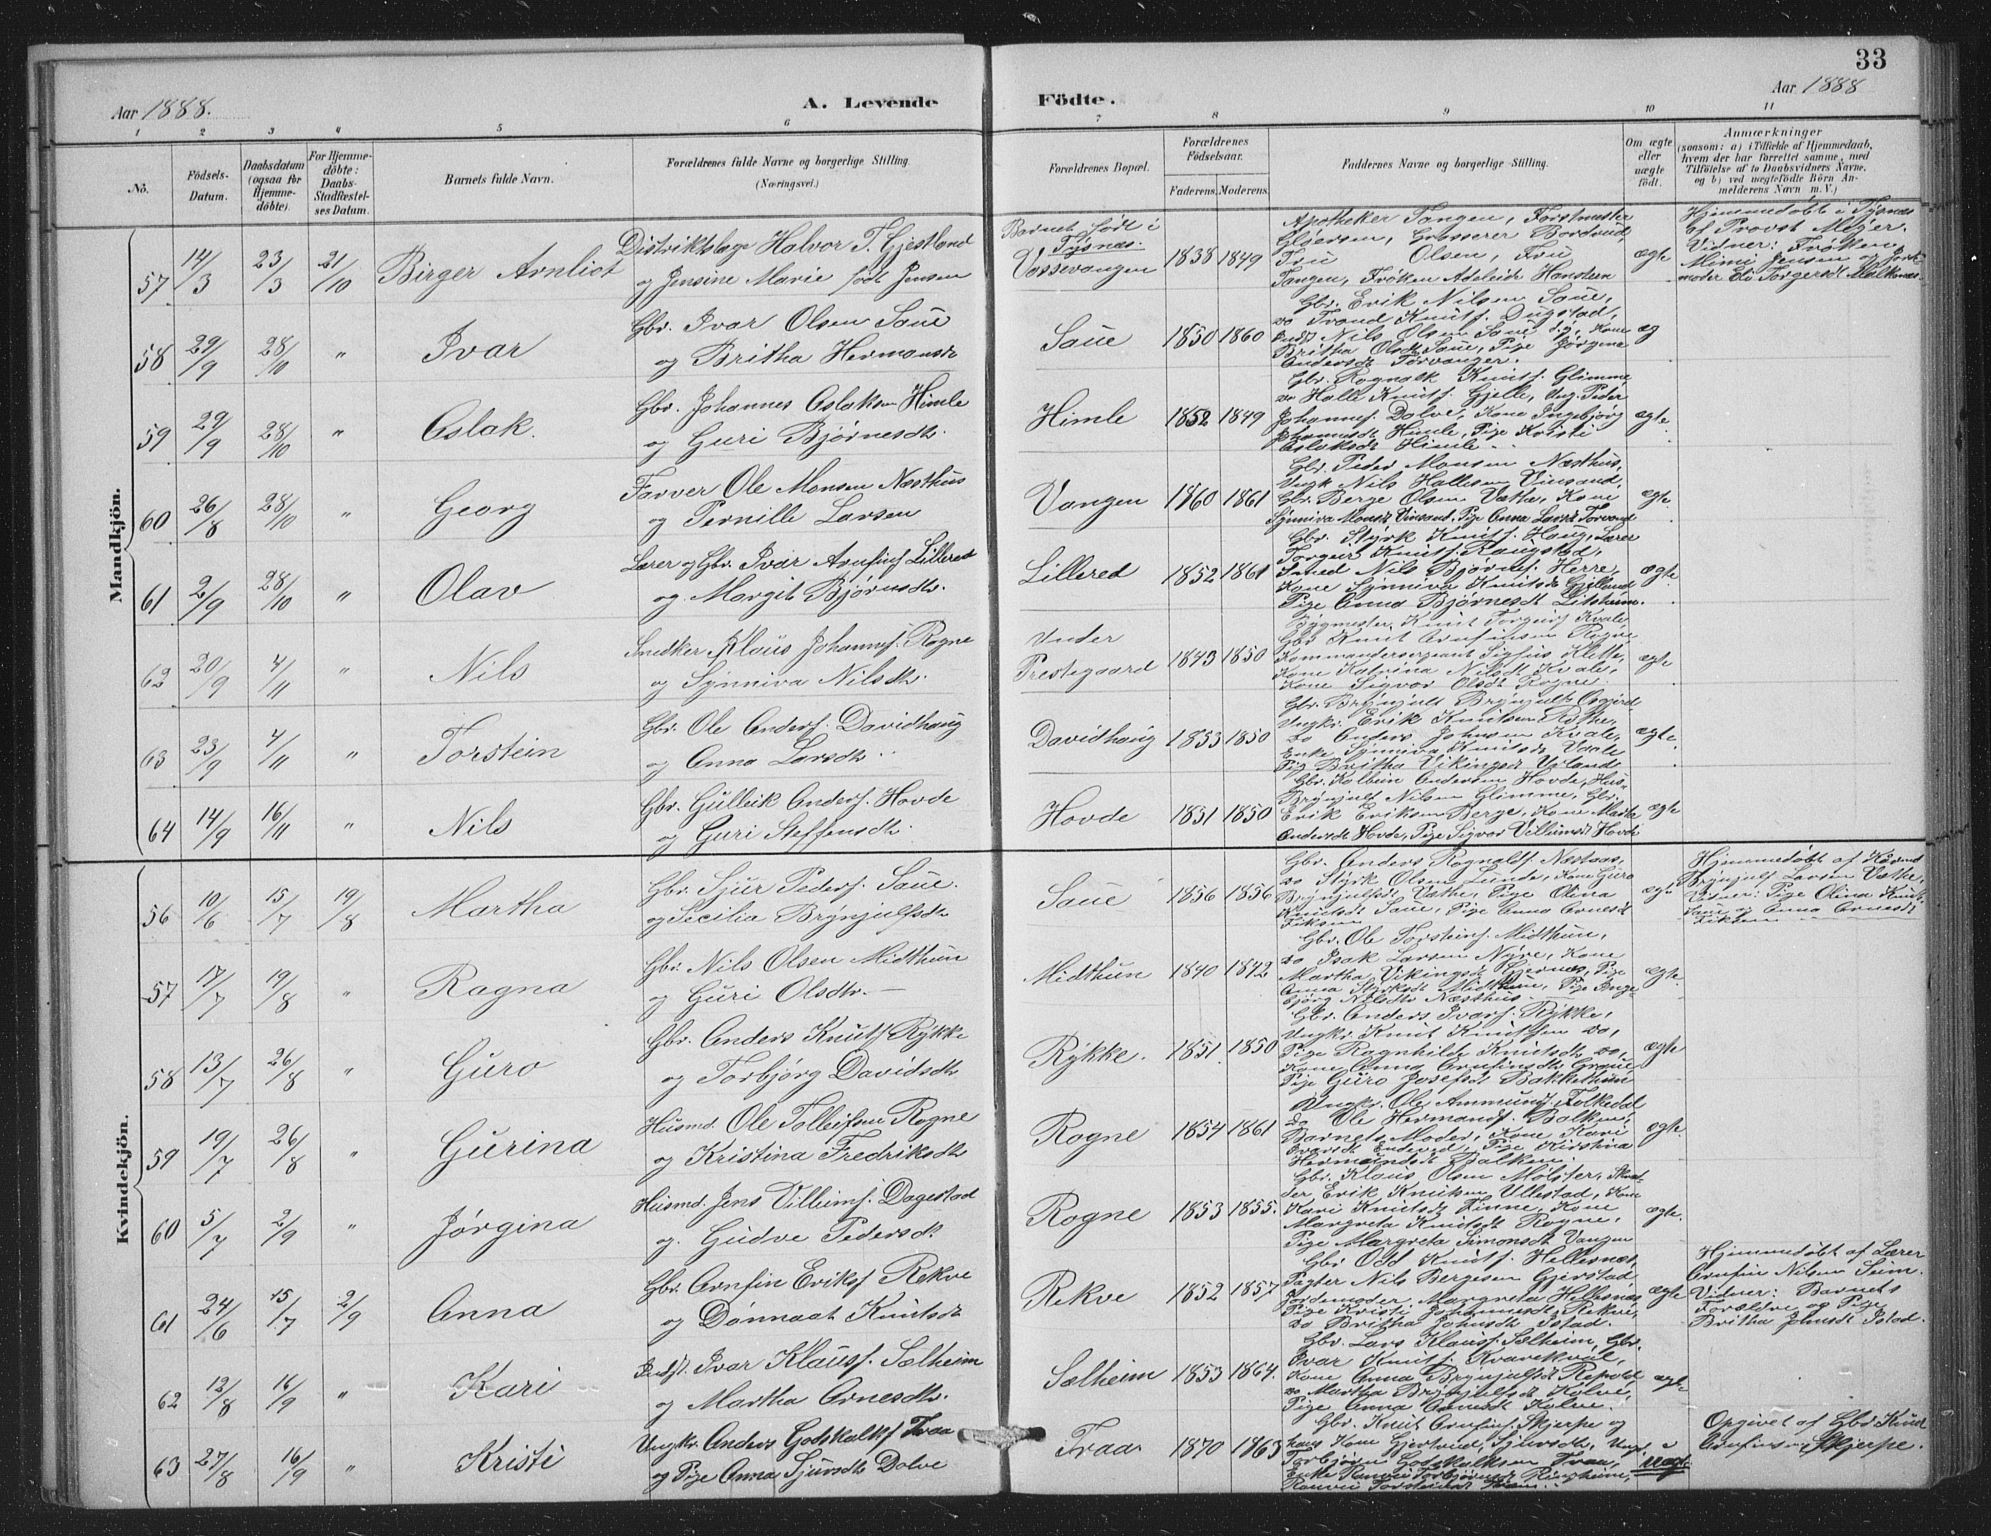 33
Aar 1888.
A. Levende Födte.
Aar 1888
1 2 3 4 5 6 7 8 9 10 11
No.
Födsels-Datum.
Daabsdatum (ogsaa for Hjemmedöbte).
For Hjemmedöbte: Daabs-Stadfæstelses Datum.
Barnets fulde Navn.
Forældrenes fulde Navne og borgerlige Stilling.
(Næringsvei.)
Forældrenes Bopæl.
Forældrenes Födselsaar.
Faderens. Moderens.
Faddernes Navne og borgerlige Stilling.
Om ægte eller uægte födt.
Anmærkninger
(saasom: a) i Tilfælde af Hjemmedaab, hvem der har forrettet samme, med Tilföielse af to Daabsvidners Navne, og b) ved uægtefödte Börn Anmelderens Navn m. V.)
Mandkjön.
57 14/3 23/3 21/10 Birger Arnliot
Distriktslæge Halvor T. Gjestland
og Jensine Marie født Jensen
Barnet født i
Tysnæs.
Vossevangen 1838 1849
Apotheker Tangen, Forstmester
Gløersen, Grosserer Bordvid,
Fru Olsen, Fru
Tangen, Frøken Adelaide Hansteen
ægte
Hjemmedøbt i Tysnæs
af Provst Meyer.
Vidner: Frøken
Mimi Jensen og Jord-
moder Eli Torgersdt Malknæs.
58 29/9 28/10 " Ivar
Gbr. Ivar Olsen Saue
og Britha Hermansdt
Saue 1850 1860
Gbr. Erik Nilsen Saue,
do Trond Knuts. Dugstad,
Inds. Nils Olsen Saue, Kone
Britha Olsdt Saue, Pige Jørgina
Andersdt Tørvanger.
æg
59 29/9 28/10 " Aslak.
Gbr. Johannes Aslaksen Himle
og Guri Bjørnesdtr.
Himle 1852 1849
Gbr. Rognald Knuts. Glimme,
do Halle Knuts. Gjelle, Ung. Peder
Johannes. Dolve, Kone Ingebjørg
Johannesdt Himle, Pige Kristi
Aslaksdt Himle.
ægte
60 26/8 28/10 " Georg
Farver Ole Monsen Næsthus
og Pernille Larsen
Vangen 1860 1861
Gbr. Peder Monsen Næsthus,
Ungk Nils Hallesen Vinsand,
Gbr. Berge Olsen Væthe, Kone
Synniva Monsdt Vinsand, Pige Anna Larsdt
ægte
61 2/9 28/10 " Olav
Lærer og Gbr. Ivar Arnfins. Lillered
og Margit Bjørnsdtr.
Lillered 1852 1861
Gbr Styrk Knuts. Haug, Lærer
Torgeir Knuts. Rangstad,
Smed Nils Bjørns. Herre,
Kone Synniva Knutsdt Gjelland
Pige Anna Bjørnesdt Litsheim.
ægte
62 20/9 4/11 " Nils
Snedker Klaus Johannes. Rogne
og Synniva Nilsdtr.
Under
Prestegaard 1843 1850
Bygmester Knut Torgeirs. Kvale,
Gbr Knut Arnfinsen Rogne
Kommandersergeant Sigfus Klette,
Kone Katrina Nilsdt Kvale,
Kone Sigvor Olsdt Rogne.
ægte
63 23/9 4/11 " Torstein
Gbr. Ole Anders. Davidhaug
og Anna Larsdtr.
Davidhaug 1853 1850
Gbr. Brynjulf Brynjulfs.
Ungkr. Erik Knutsen Røthe,
do Anders Johnsen Kvale,
Enke Synniva Knutsdt
Pige Britha Vikingsdt
ægte
64 14/9 16/11 " Nils
Gbr. Gulleik Anders. Hovde
og Guri Steffensdtr.
Hovde 1851 1850
Gbr. Kolbein Andersen Hovde, Hus.
Brynjulf Nilsen Glimme, Gbr.
Erik Eriksen Berge, Kone Martha
Andersdt Hovde, Pige Sigvor Villumsdt Hovde
ægte
Kvindekjön.
56 10/6 15/7 19/8 Martha
Gbr. Sjur Peders. Saue.
og Secilia Brynjulfsdtr
Saue 1856 1856
Gbr. Anders Rognalds. Næstaas,
do Styrk Olsen Lunde, Kone Guro
Brynjulfsdt Væthe, Pige Olina
Knutsdt Saue, Pige Anna Arnesdt
Tiksen
ægte
Hjemmedøbt af
Brynjulf Larsen Væthe,
Vidner: Pige Olina Knuts.
Saue og Anna Arnesdt
57 17/7 19/8 " Ragna
Gbr. Nils Olsen Midthun
og Guri Olsdtr.
Midthun 1840 1842
Gbr. Ole Torsteins. Midthun,
do Isak Larsen Nyre, Kone
Martha Vikingsdt, Pige
Anna Styrksdt Midthun, Pige Inge-
bjørg Nilsdtr Næsthus.
ægte
58 13/7 26/8 " Guro
Gbr. Anders Knuts. Rykke
og Torbjørg Davidsdtr
Rykke. 1851 1850
Gbr. Anders Ivars. Rykke,
Ungkr. Knut Knutsen do,
Pige Ragnhilda Knutsdt do,
Kone Anna Arnfinsdt Graue,
Pige Guro Josefsdt Bakkethun
ægte
59 19/7 26/8 " Gurina
Husmd. Ole Tolleifsen Rogne
og Kristina Fredriksdtr
Rogne 1854 1861
Ungkr. Ole Ammunds. Folkedal
Do Ole Hermands. Balken,
Barnets Moder, Kone Kari
Ivarsdt Endeved, Pige Kirstina
Hermundsdt Balken.
ægte
60 5/7 2/9 " Jørgina
Husmd. Jens Villums. Dagestad
og Gudve Pedersdt.
Rogne 1853 1855.
Gbr. Klaus Olsen Mølster, Skræd-
der Erik Knutsen Ullestad, Kone
Kari Knutsdt Finne, Kone
Margreta Knutsdt Rogne,
Pige Margreta Simonsdt Vangen
ægte.
61 24/6 15/7 2/9 Anna
Gbr. Arnfin Eriks. Rekve
og Dønnaat Knutsdt
Rekve 1852 1857
Gbr Odd Knuts. Hellesnæs,
Pagter Nils Bergesen Gjerstad,
Jordemoder Margreta Hellesnæs
Pige Kristi Johannesdt Rekve,
do Britha Johnsdt Istad.
ægte
Hjemmedøbt af Lærer
Arnfin Nilsen Seim.
Vidner: Barnets
Forældre og Pige
Britha Johnsdt Istad.
62 12/8 16/9 " Kari
Inds. Ivar Klauss. Sælheim
og Martha Arnesdtr.
Sælheim 1853 1864.
Gbr. Lars Klauss. Sælheim, Gbr.
Ivar Knuts. Kvarekval,
Kone Anna Brynjulfsdt
do Martha Brynjulfsdt Kolve,
Pige Anna Arnesdt Kolve.
ægte
63 27/8 16/9 " Kristi
Ungkr. Anders Godskalks. Traa
og Pige Anna Sjursdtr Dolve
Traa 1870 1863
Gbr. Knut Arnfins. Skjerpe og
hans Kone Gjertrud Sjursdtr, Ungk.
Torbjørn Godskalksen Traa,
Enke Ranveig Torbjørnsdt Ringheim,
Ranvei Torsteinsdt
uægte.
Opgivet af Gbr. Knud
Arnfinsen Skjerpe.